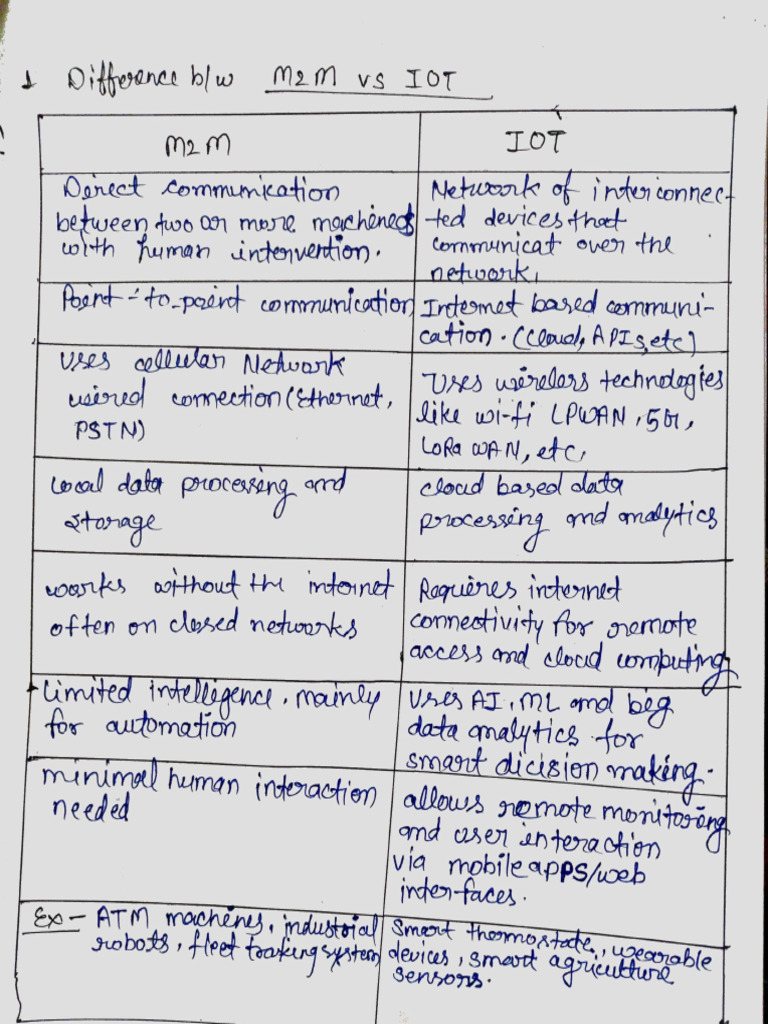 1 Difference b/w M2M vs IOT
M2M
IOT
Direct communication
between two or more machines
with human intervention.
Network of interconnec-
ted devices that
communicat over the
network.
Point-to-point communication
Internet based communi-
cation. (Cloud, APIs, etc)
Uses cellular Network
wired connection (Ethernet,
PSTN)
Uses wireless technologies
like wi-fi LPWAN, 5G,
LoRa WAN, etc.
Local data processing and
storage
cloud based data
processing and analytics
works without the internet
often on closed networks
Requires internet
connectivity for remote
access and cloud computing
Limited intelligence, mainly
for automation
Uses AI, ML and big
data analytics for
smart dicision making.
minimal human interaction
needed
allows remote monitoring
and user interaction
via mobile apps/web
interfaces.
Ex- ATM machines, industrial
robots, fleet traking system
Smart thermostate, wearable
devices, smart agriculture
sensors.